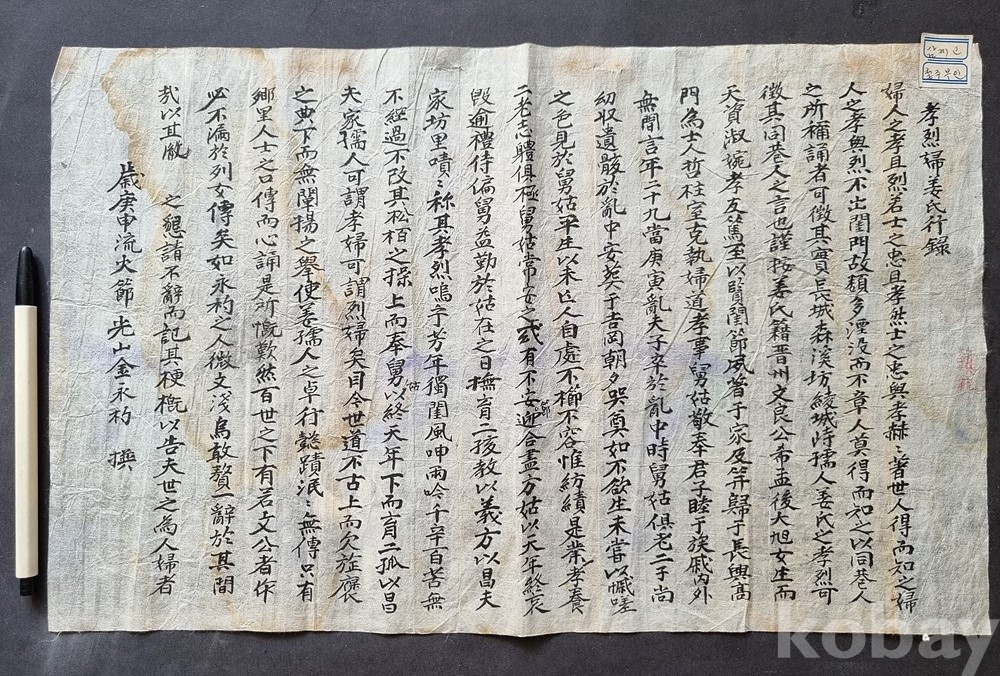 孝烈婦姜氏行錄
婦人之孝且烈若士之忠且孝然士之忠與孝赫〻著世人得而知之婦
人之孝與烈不出閨門故類多湮沒而不章人莫得而知之以同巷人
之所稱誦者可徵其實長城森溪坊綾城時孺人姜氏之孝烈可
徵其同巷人之言也謹按姜氏籍晋州文良公希孟後大旭女生而
天資淑婉孝友篤至以賢閨節夙著于家及笄歸于長興高
門為士人哲柱室克執婦道孝事舅姑敬奉君子睦于族戚內外
無間言年二十九當庚寅亂夫子卒於亂中時舅姑俱老二子尚
幼收遺骸於亂中安葬于吉岡朝夕哭奠如不欲生未嘗以慽嗟
之色見於舅姑平生以未亡人自處不櫛不容惟紡績是業孝養
二老志體俱極舅姑常安之或有不安迎合盡方姑以天年終哀
毀逾禮侍偏舅益勤於姑在之日撫育二孩教以義方以昌夫
家坊里嘖〻稱其孝烈嗚乎芳年獨閨風呻雨吟千辛百苦無
不經過不改其松栢之操上而奉舅姑以終天年下而育二孤以昌
夫家孺人可謂孝婦可謂烈婦矣目今世道不古上而欠旌褒
之典下而無闡揚之舉使姜孺人之卓行懿蹟泯〻無傳只有
鄉里人士之口傳而心誦是所慨歎然百世之下有若文公者作
必不漏於列女傳矣如永杓之人微文淺烏敢贅一辭於其間
哉以其胤　　之懇請不辭而記其梗概以告夫世之為人婦者
歲庚申流火節光山金永杓　撰
삼계면
효주부인
kobay